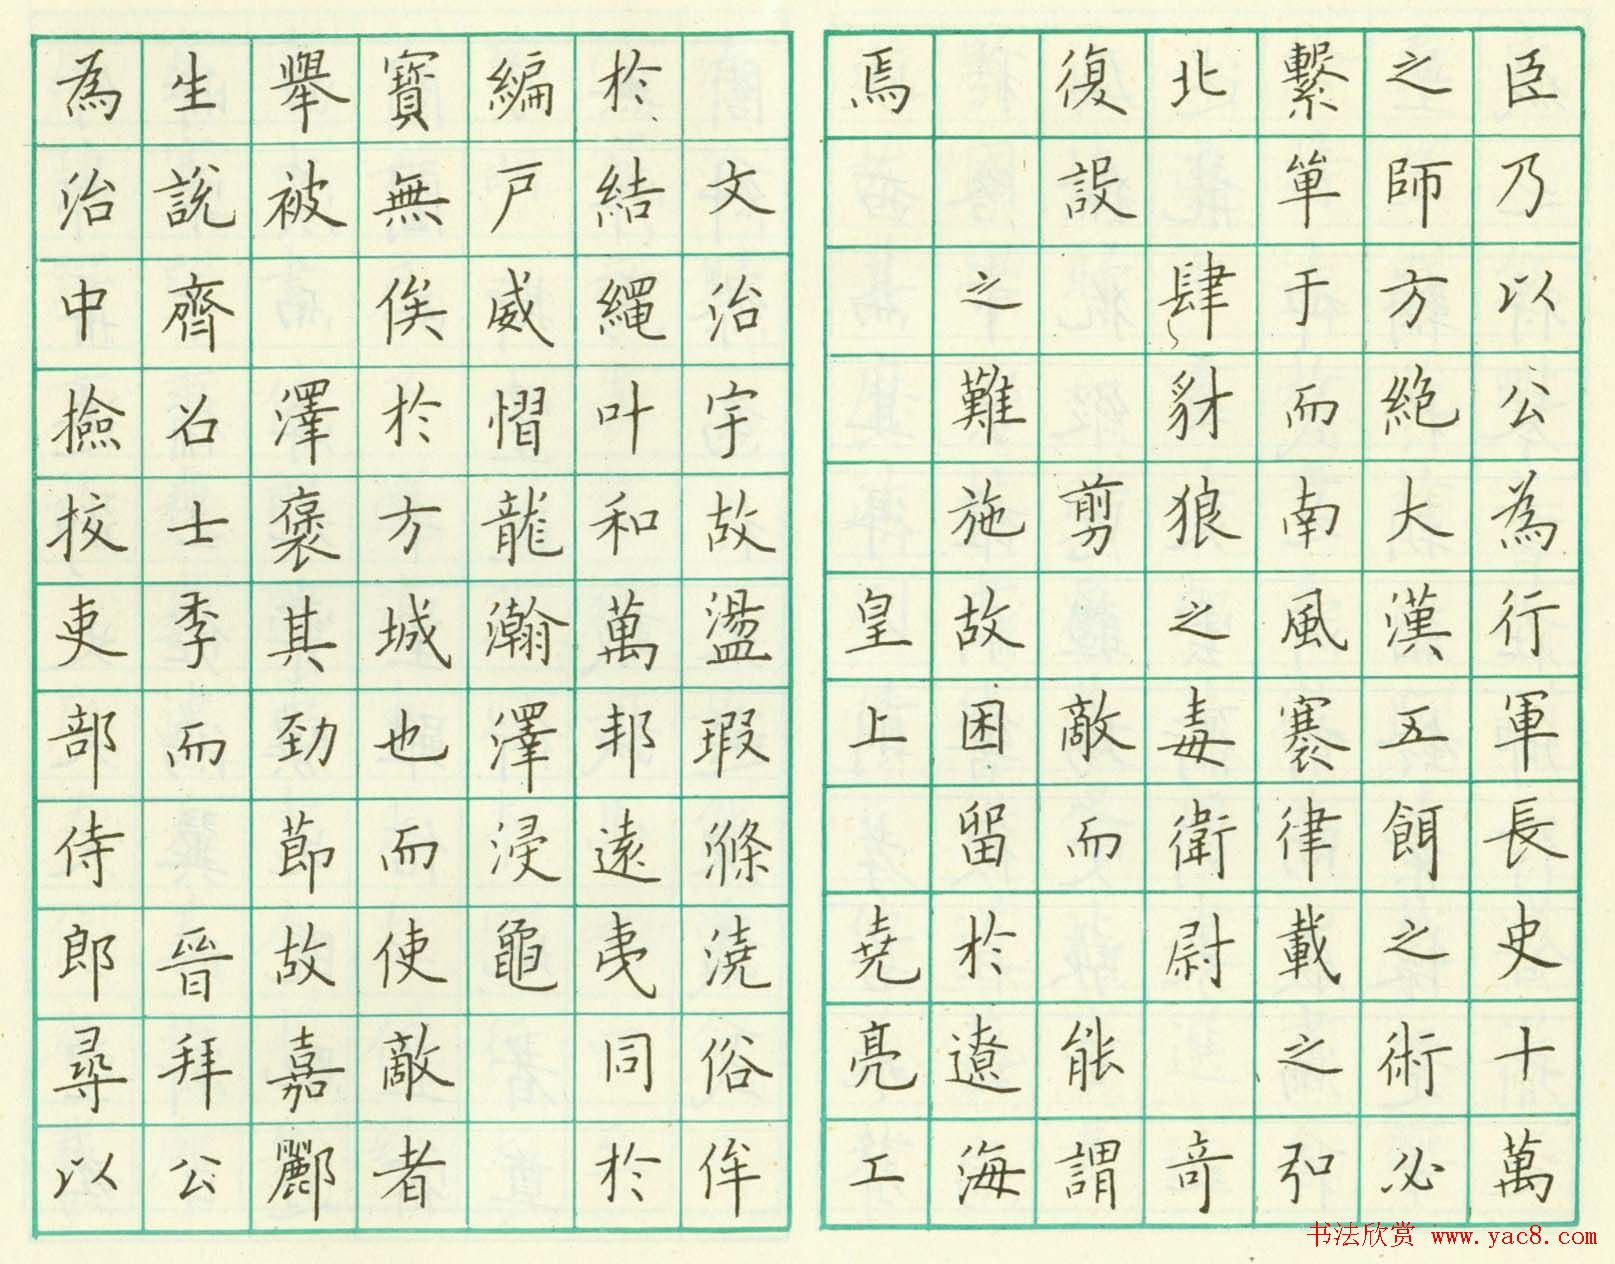 臣乃以公為行軍長史十萬
之師方絶大漢五餌之術必
繫單于而南風褰律載之弘
北肆豺狼之毒衛尉奇
復設剪敵而能謂
之難施故困留於遼海
焉皇上堯亮工
文治宇故盪瑕滌澆俗侔
於結繩叶和萬邦遠夷同於
編戶威慴龍瀚澤浸龜
寶無俟於方城也而使敵者
舉被澤褒其勁節故嘉酈
生說齊召士季而晉拜公
為治中撿挍吏部侍郎尋以
书法欣赏 www.yac8.com